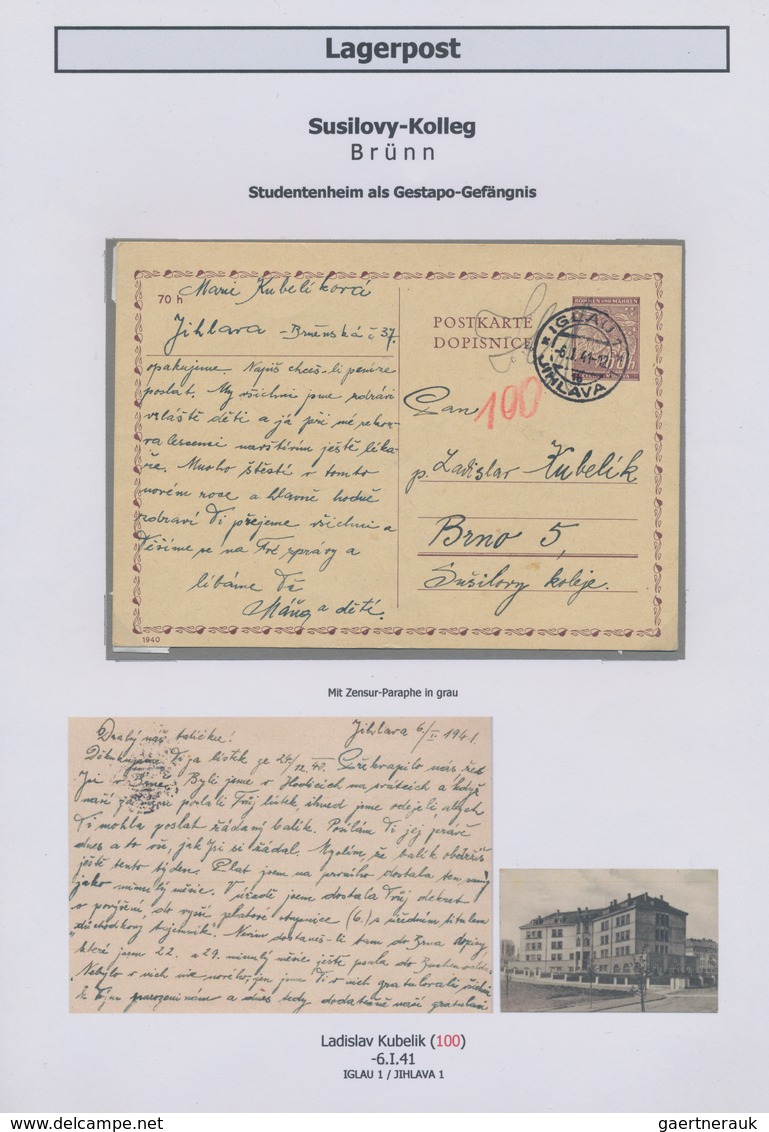 Lagerpost
Susilovy-Kolleg
Brünn
Studentenheim als Gestapo-Gefängnis
70 h
Marie Kubelíková
Jihlava - Brněnská č. 37.
POSTKARTE
DOPISNICE
BÖHMEN UND MÄHREN
IGLAU 1
-6.I.41-12
JIHLAVA 1
opakujeme. Napiš chceš-li peníze
poslat. My všichni jsme zdrávi
zvláště děti a já při mé
navštívím ještě léka-
ře. Mnoho štěstí v tomto
novém roce a hlavně hodně
zdraví Ti přejeme všichni a
Těšíme se na Tvé zprávy a
líbáme Tě
Máňa a děti.
Pan
100
p. Ladislav Kubelík
Brno 5,
Sušilovy koleje.
1940
Mit Zensur-Paraphe in grau
Jihlava 6/I 1941.
Drahý náš tatíčku!
Děkujeme Ti za lístek ze 26/12 40. Překvapilo nás, že
Jsi v Brně. Byli jsme v na svátcích a když
naši poslali Tvůj lístek, ihned jsme odejeli, abych
Ti mohla poslat žádaný balík. Posílám Ti jej právě
dnes a to vše, jak jsi si žádal. Myslím, že balík obdržíš
ještě tento týden. Plat jsem na prvního dostala ten samý
jako minulý měsíc. V úřadě jsem dostala Tvůj dekret
o povýšení do vyšší platové stupnice (6.) s úředním titulem
"důchodkový Nevím dostaneš-li tam do Brna dopisy,
které jsem 22. a 29. minulý měsíc ještě psala do
Nebylo v nich nic nového, jen jsme Ti v nich gratulovali
k Tvým narozeninám a dnes tedy dodatečně naši gratulaci
Ladislav Kubelik (100)
-6.I.41
IGLAU 1 / JIHLAVA 1
gaertnerauk
www.delcampe.net